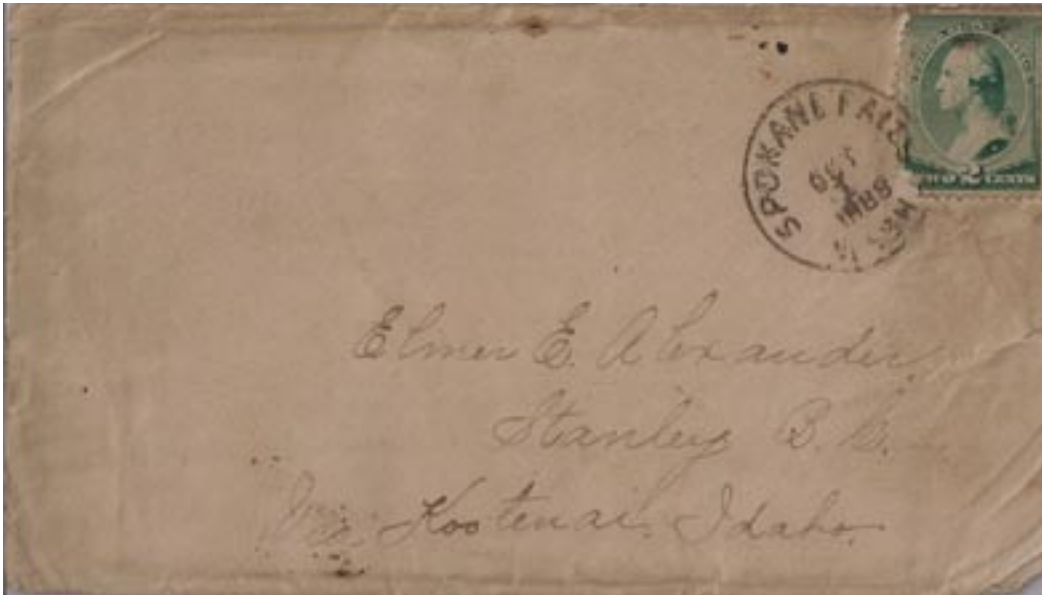 SPOKANE FALLS
OCT
1888
TWO 2 CENTS
Elmer E. Alexander,
Stanley B.C.
Via Kootenai, Idaho.